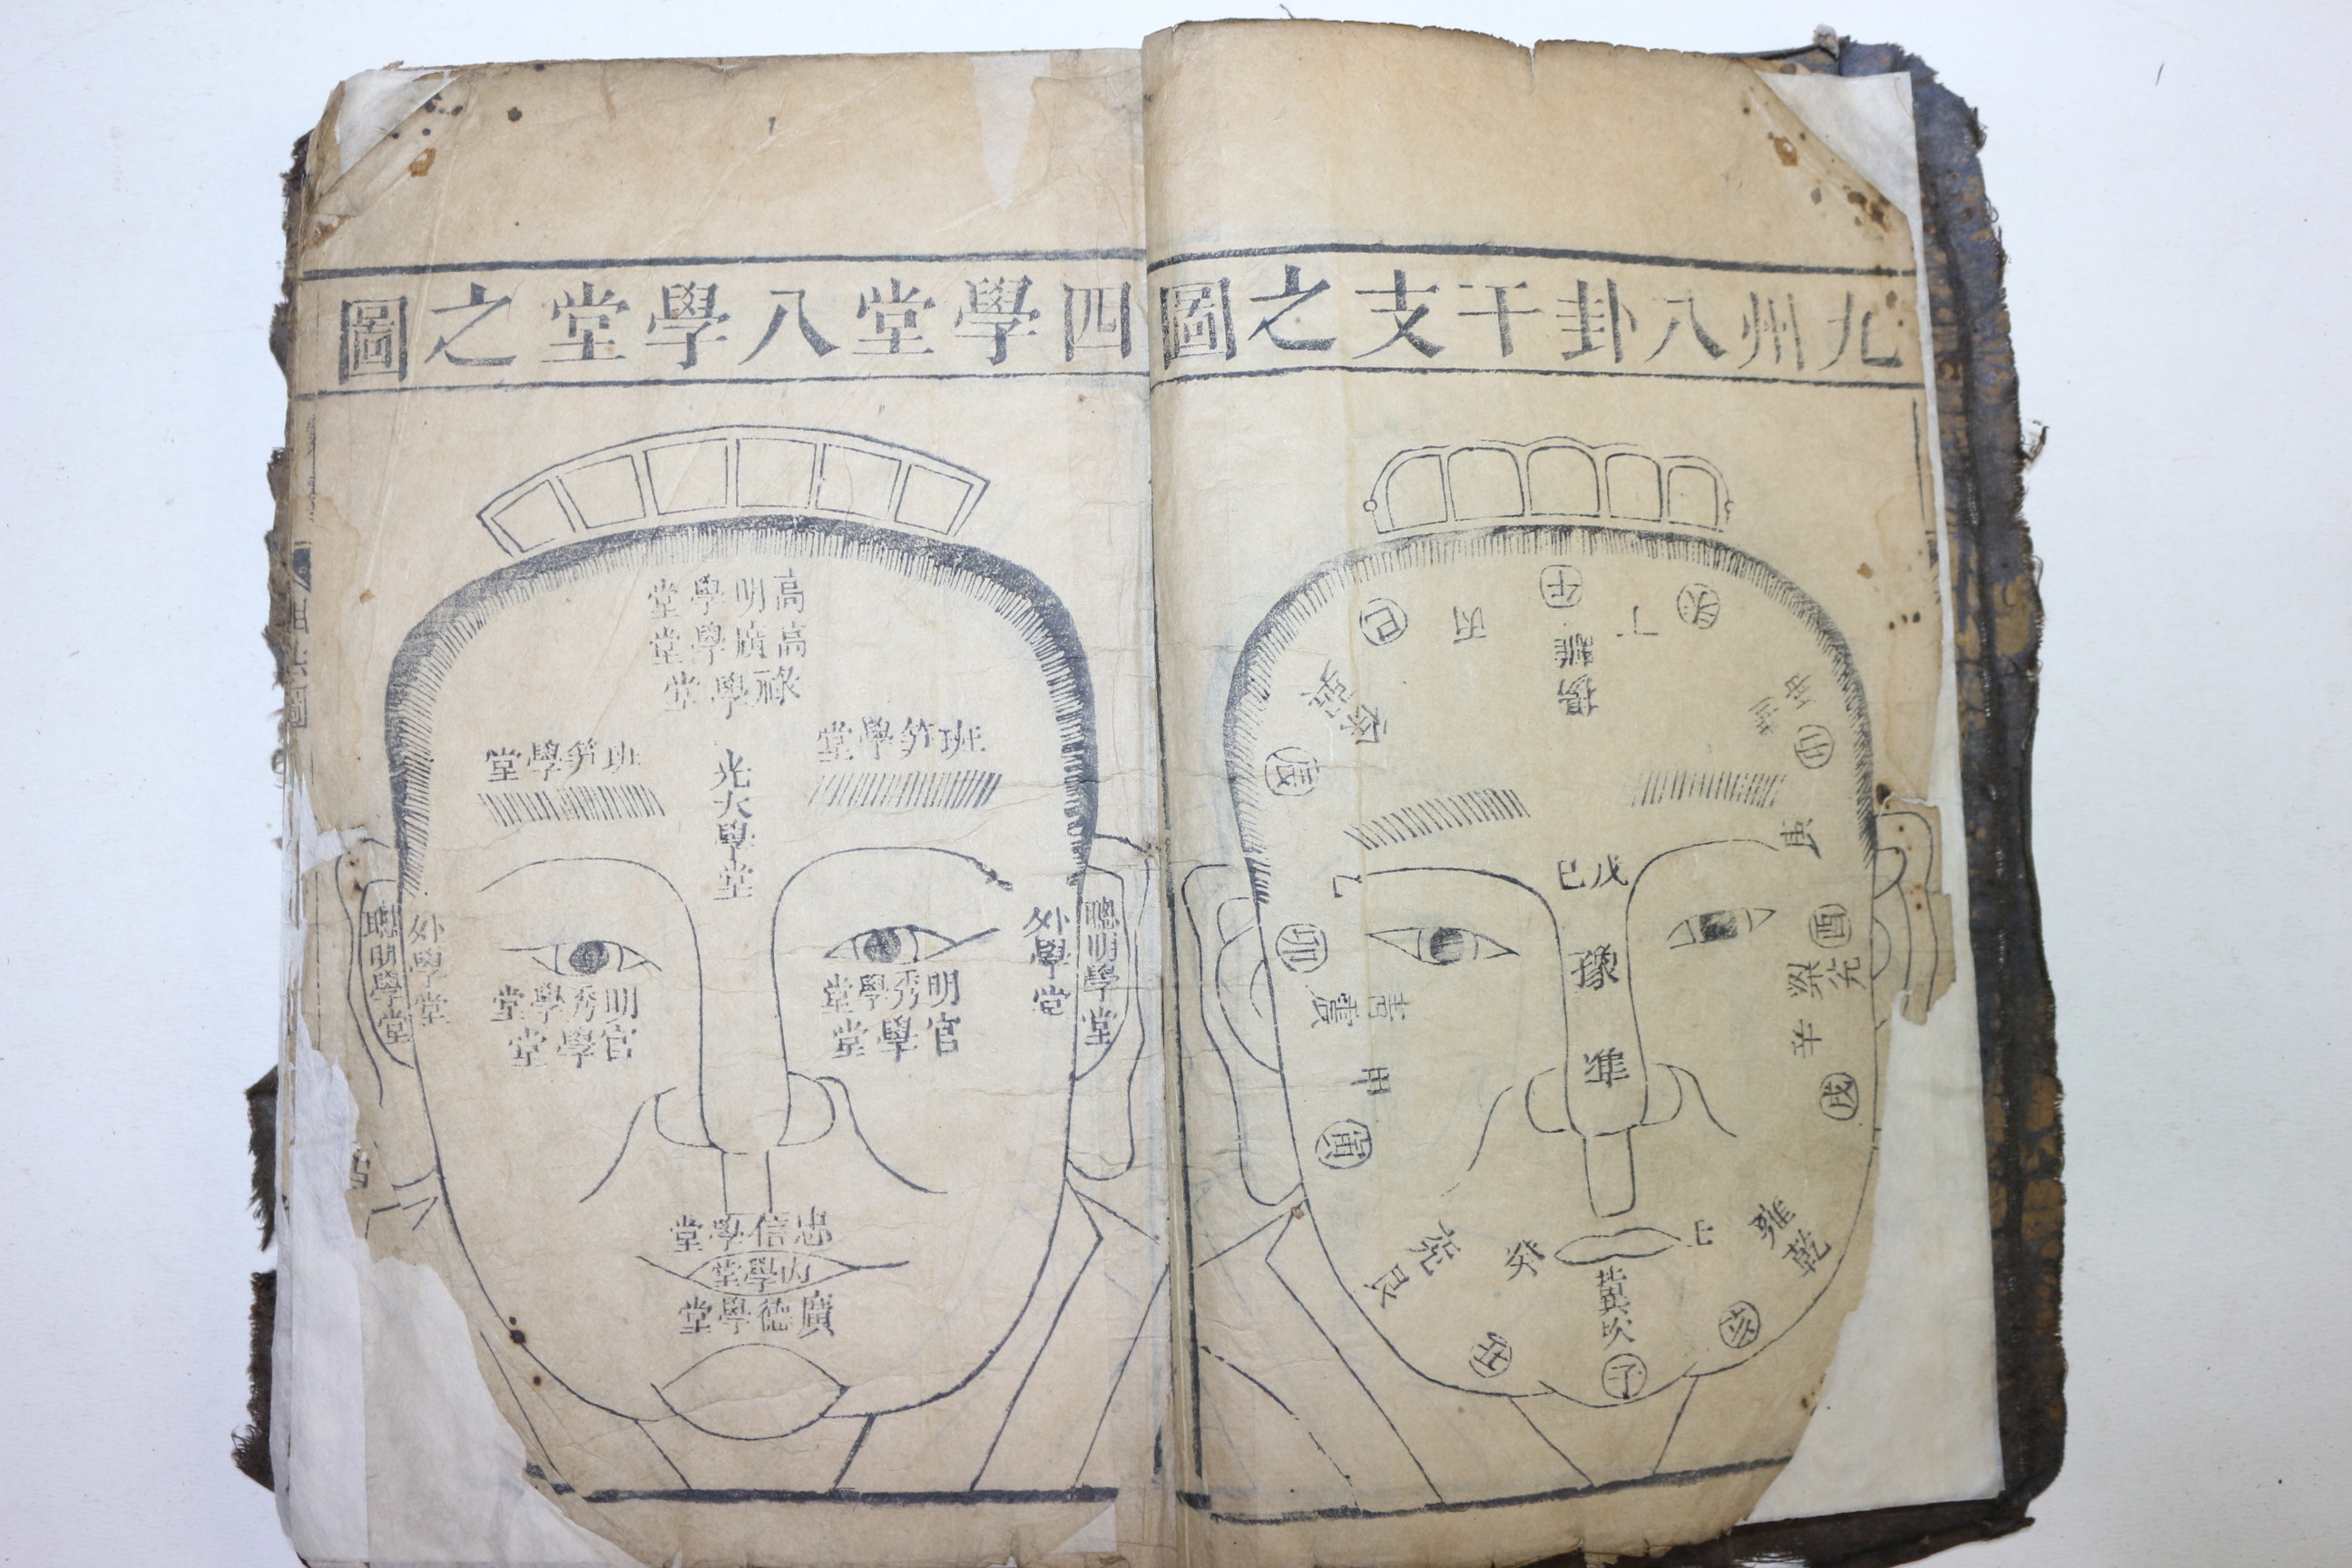 九州八卦干支之圖
午
離
揚
丁
未
丙
巳
申
庚
酉
梁兌
辛
戌
戊己
豫
準
乙
辰
卯
青震
甲
寅
癸
艮
雍乾
亥
冀坎
子
丑
四學堂八學堂之圖
高明學堂
高廣學堂
祿學堂
班笋學堂
班笋學堂
光大學堂
聰明學堂
外學堂
明秀學堂
官學堂
明秀學堂
官學堂
外學堂
聰明學堂
忠信學堂
內學堂
廣德學堂